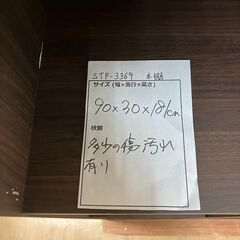 STP-3369 本棚
サイズ(幅×奥行×高さ)
90×30×181cm
状態
多少の傷汚れ
有り